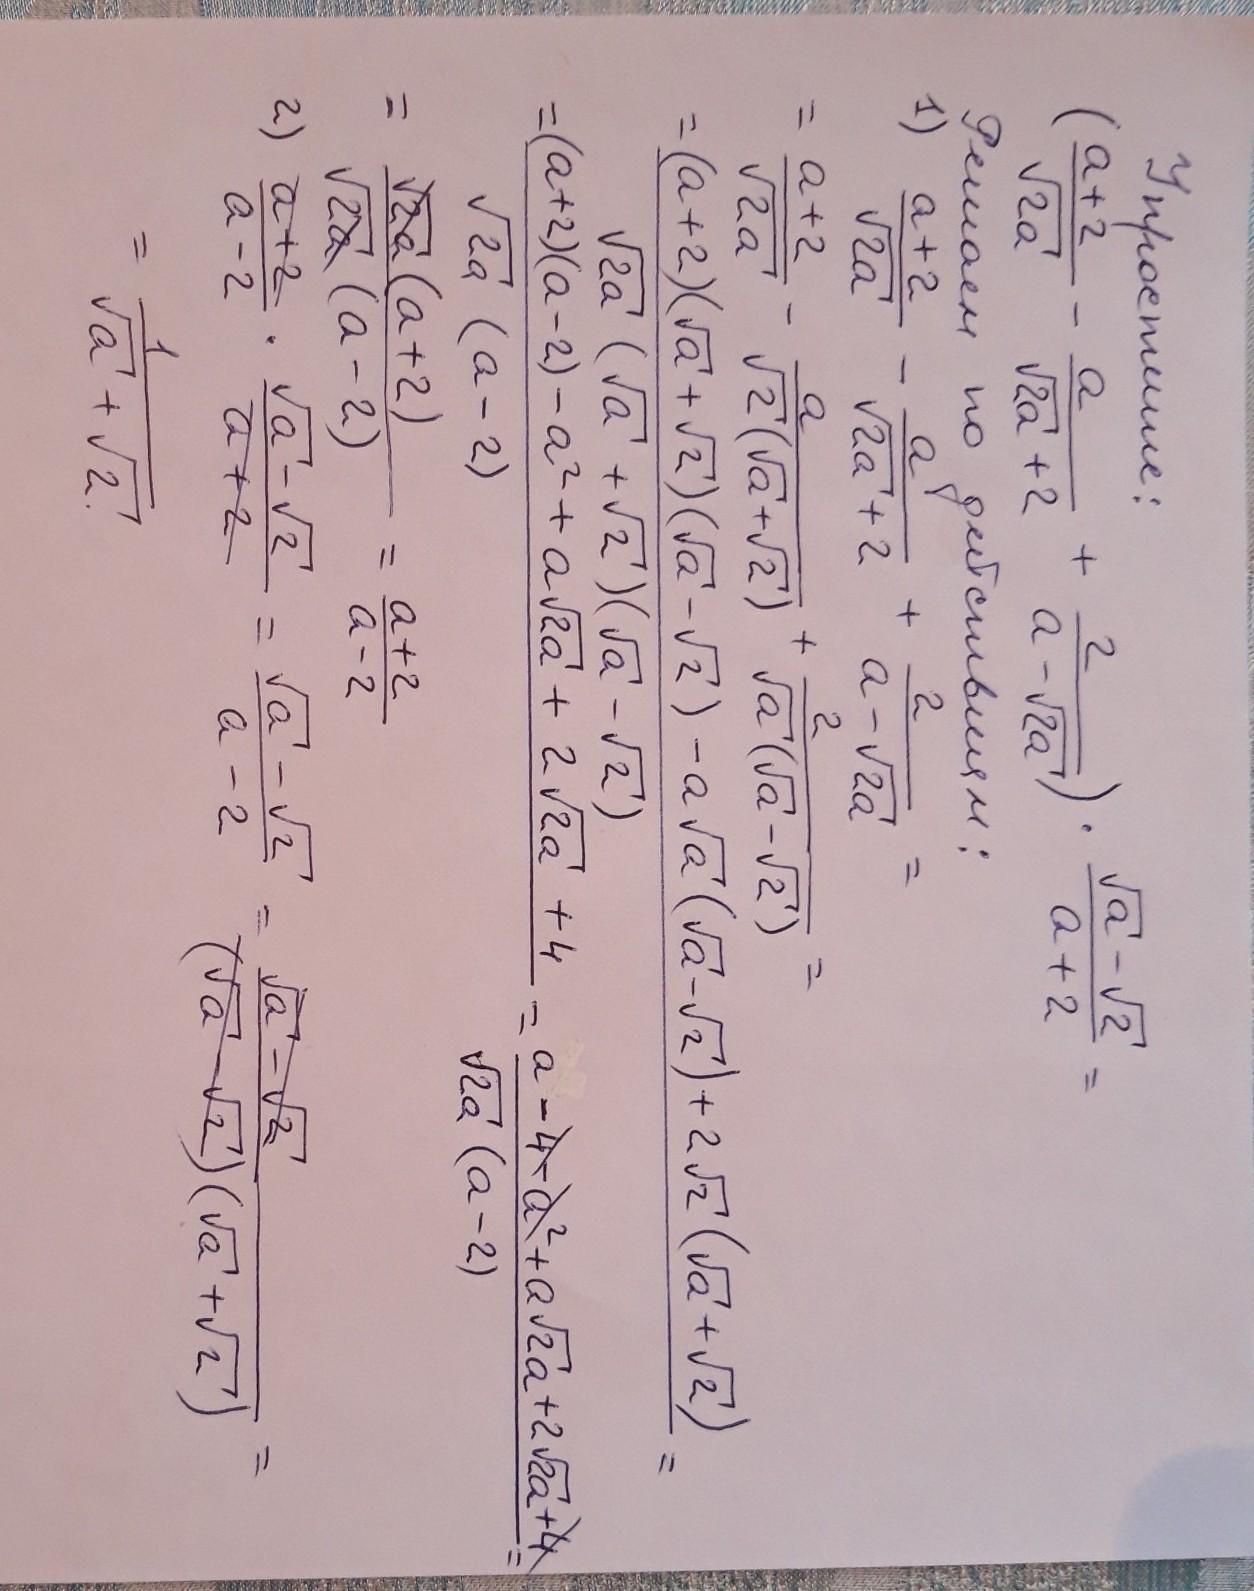 Упростите:
(a+2/√2a − a/√2a+2 + 2/a−√2a) · √a−√2/a+2 =
Решаем по действиям:
1) a+2/√2a − a/√2a+2 + 2/a−√2a =
= a+2/√2a − a/√2(√a+√2) + 2/√a(√a−√2) =
= (a+2)(√a+√2)(√a−√2)−a√a(√a−√2)+2√2(√a+√2)/√2a(√a+√2)(√a−√2) =
= (a+2)(a−2)−a²+a√2a+2√2a+4/√2a(a−2) = a−4−a²+a√2a+2√2a+4/√2a(a−2) =
= √2a(a+2)/√2a(a−2) = a+2/a−2
2) a+2/a−2 · √a−√2/a+2 = √a−√2/a−2 = √a−√2/(√a−√2)(√a+√2) =
= 1/√a+√2.